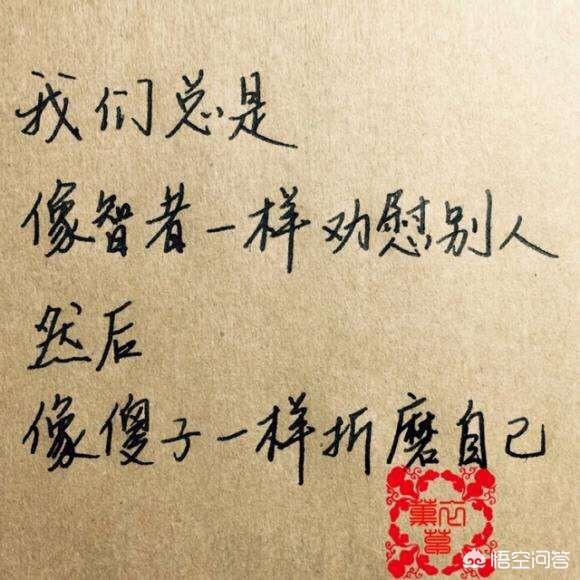 我们总是
像智者一样劝慰别人
然后
像傻子一样折磨自己
悟空问答